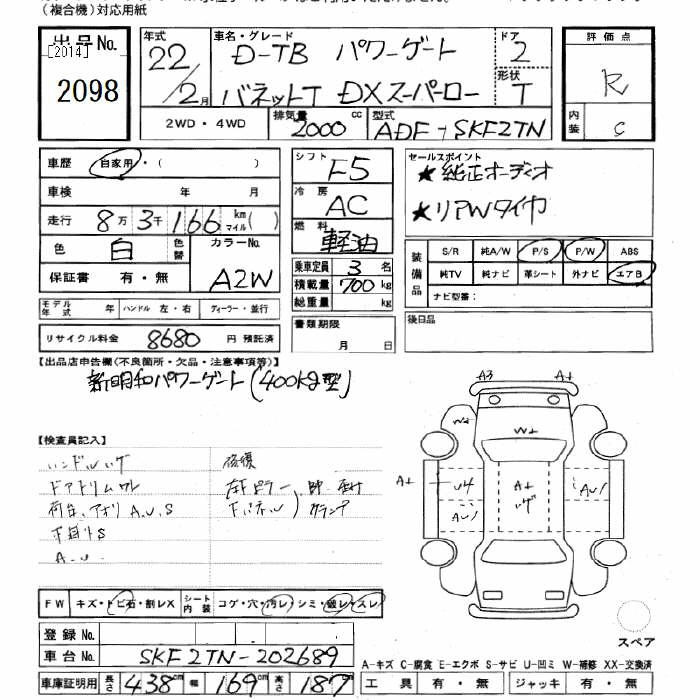 （複合機）対応用紙
出品No.
[2014]
2098
年式
22/2月
車名・グレード
D-TB パワーゲート
バネットT DXスーパーロー
ドア
2
形状
T
2WD・4WD
排気量
2000cc
型式
ADF-SKF2TN
評価点
R
内装
C
車歴 自家用・( )
車検 年 月
走行 8万3千166 km マイル( )
色 白 色替
カラーNo.
A2W
保証書 有・無
モデル年式 年 ハンドル 左・右 ディーラー・並行
リサイクル料金 8680 円 預託済
シフト
F5
冷房
AC
燃料
軽油
乗車定員 3 名
積載量 700 kg
総重量 kg
書類期限
月 日
セールスポイント
★純正オーディオ
★リアWタイヤ
装備品
S/R 純A/W P/S P/W ABS
純TV 純ナビ 革シート 外ナビ エアB
ナビ型番：
後日品
【出品店申告欄(不良箇所・欠品・注意事項等)】
新明和パワーゲート(400kg型)
【検査員記入】
ハンドルスレ
ドアトリムワレ
荷台、アオリA,U,S
下回りS
A-U
修復
A3 A1
W2 W2
A1 U4 A1 AU1
AU1
スペア
FW キズ・トビ石・割レX シート内装 コゲ・穴・汚レ・シミ・破レ・スレ
登録No.
車台No. SKF2TN-202689
車庫証明用 長さ 438cm 幅 169cm 高さ 187cm
A-キズ C-腐食 E-エクボ S-サビ U-凹ミ W-補修 XX-交換済
工具 有・無 ジャッキ 有・無